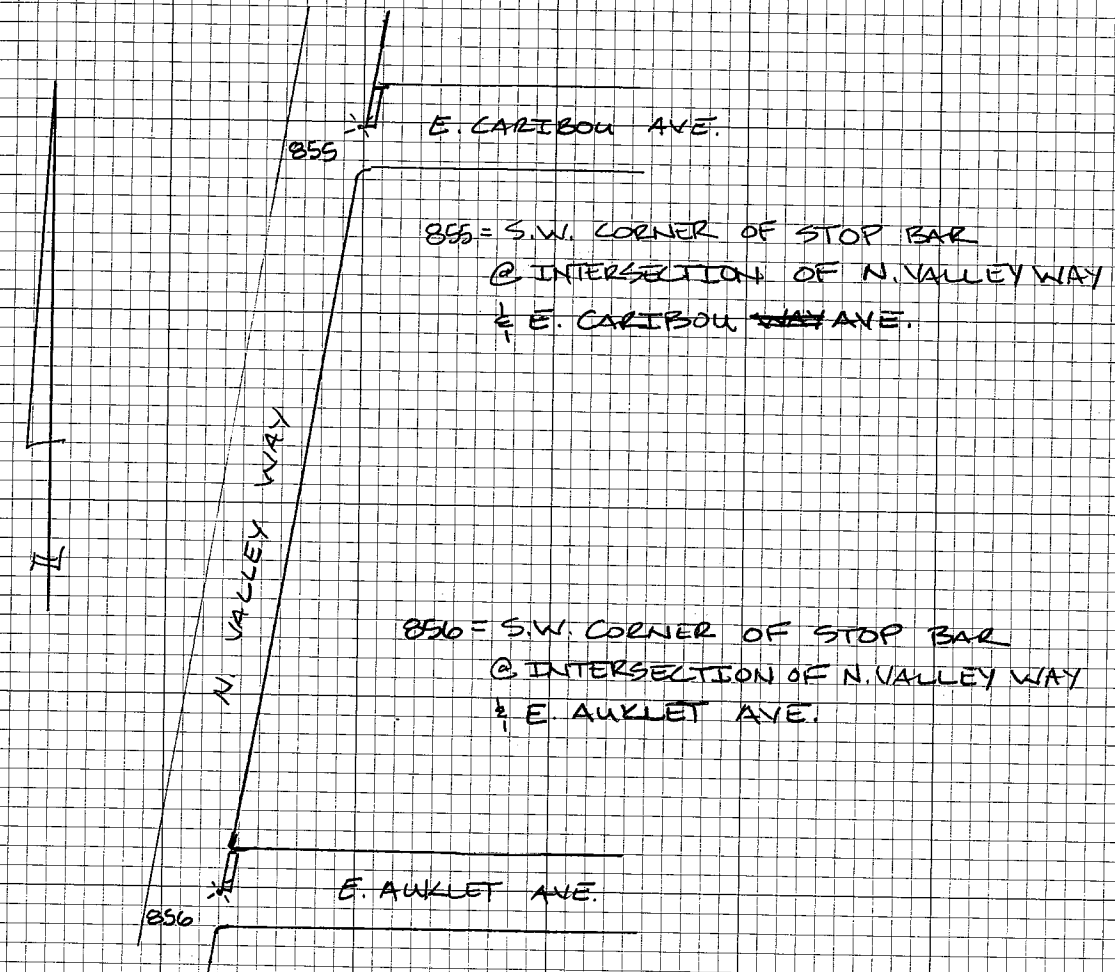 E. CARIBOU AVE.
855
855 = S.W. CORNER OF STOP BAR
@ INTERSECTION OF N. VALLEY WAY
& E. CARIBOU WAY AVE.
N. VALLEY WAY
856 = S.W. CORNER OF STOP BAR
@ INTERSECTION OF N. VALLEY WAY
& E. AUKLET AVE.
E. AUKLET AVE.
856
N